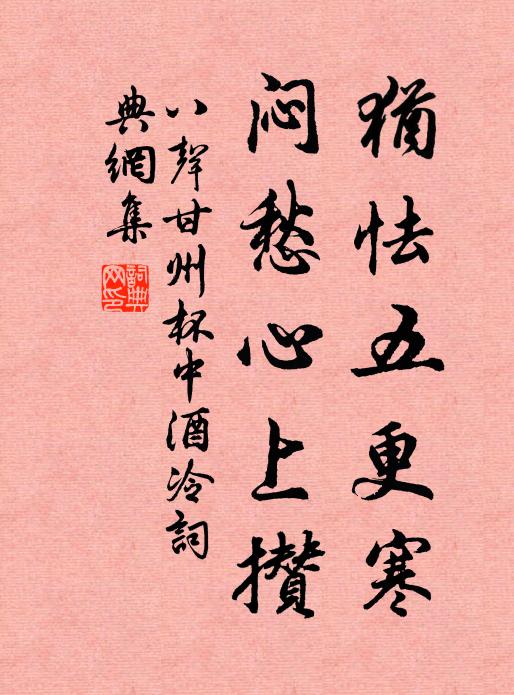 猶怯五更寒
闷愁心上攒
八聲甘州杯中酒冷詞
典網集
詞典網印